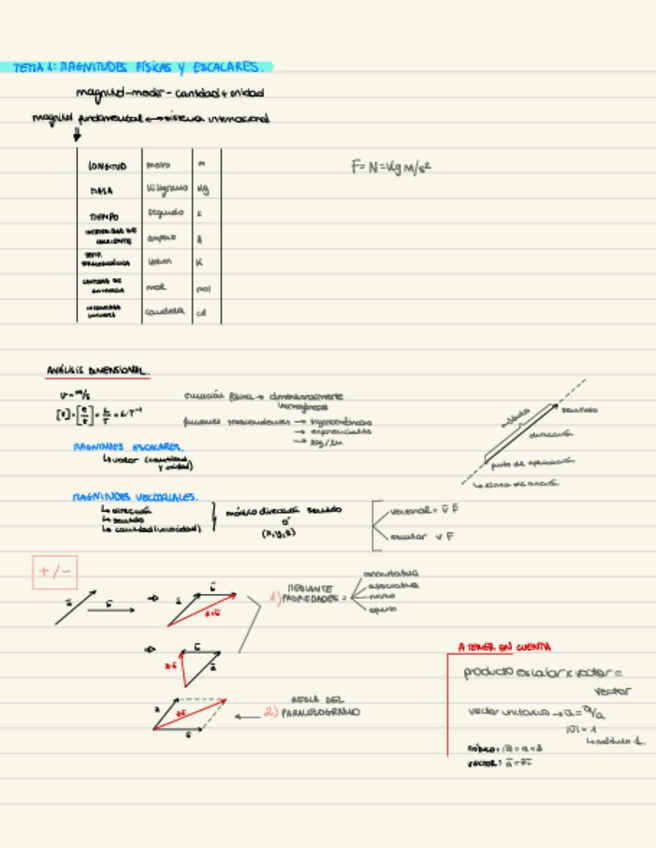 TEMA 1: MAGNITUDES FÍSICAS Y ESCALARES.
magnitud-medir-cantidad+unidad
magnitud fundamental ⟷ sistema internacional
LONGITUD metro m
F=N=Kg m/s²
MASA kilogramo Kg
TIEMPO segundo s
INTENSIDAD DE CORRIENTE amperio A
TERMODINÁMICA kelvin K
CANTIDAD DE mol mol
INTENSIDAD LUMINOSA candela cd
ANÁLISIS DIMENSIONAL.
v = m/s
ecuación física → dimensionalmente
homogéneas
[v] = [e/t] = L/T = L·T⁻¹
funciones trascendentes → trigonométricas
→ exponenciales
→ log/ln
módulo
sentido
dirección
punto de aplicación
↳ línea de acción
MAGNITUDES ESCALARES.
↳ valor (cantidad
y unidad)
MAGNITUDES VECTORIALES.
↳ dirección
↳ sentido
↳ cantidad (velocidad)
módulo dirección sentido
o
(x,y,z)
vectorial
escalar v F
+/-
1) MEDIANTE
PROPIEDADES =
conmutativa
asociativa
a
b
a+b
a-b
2) REGLA DEL
PARALELOGRAMO
A TENER EN CUENTA
producto escalar x vector =
vector
vector unitario → u = a/a
|u| = 1
↳ módulo 1.
MÓDULO:
VECTOR: